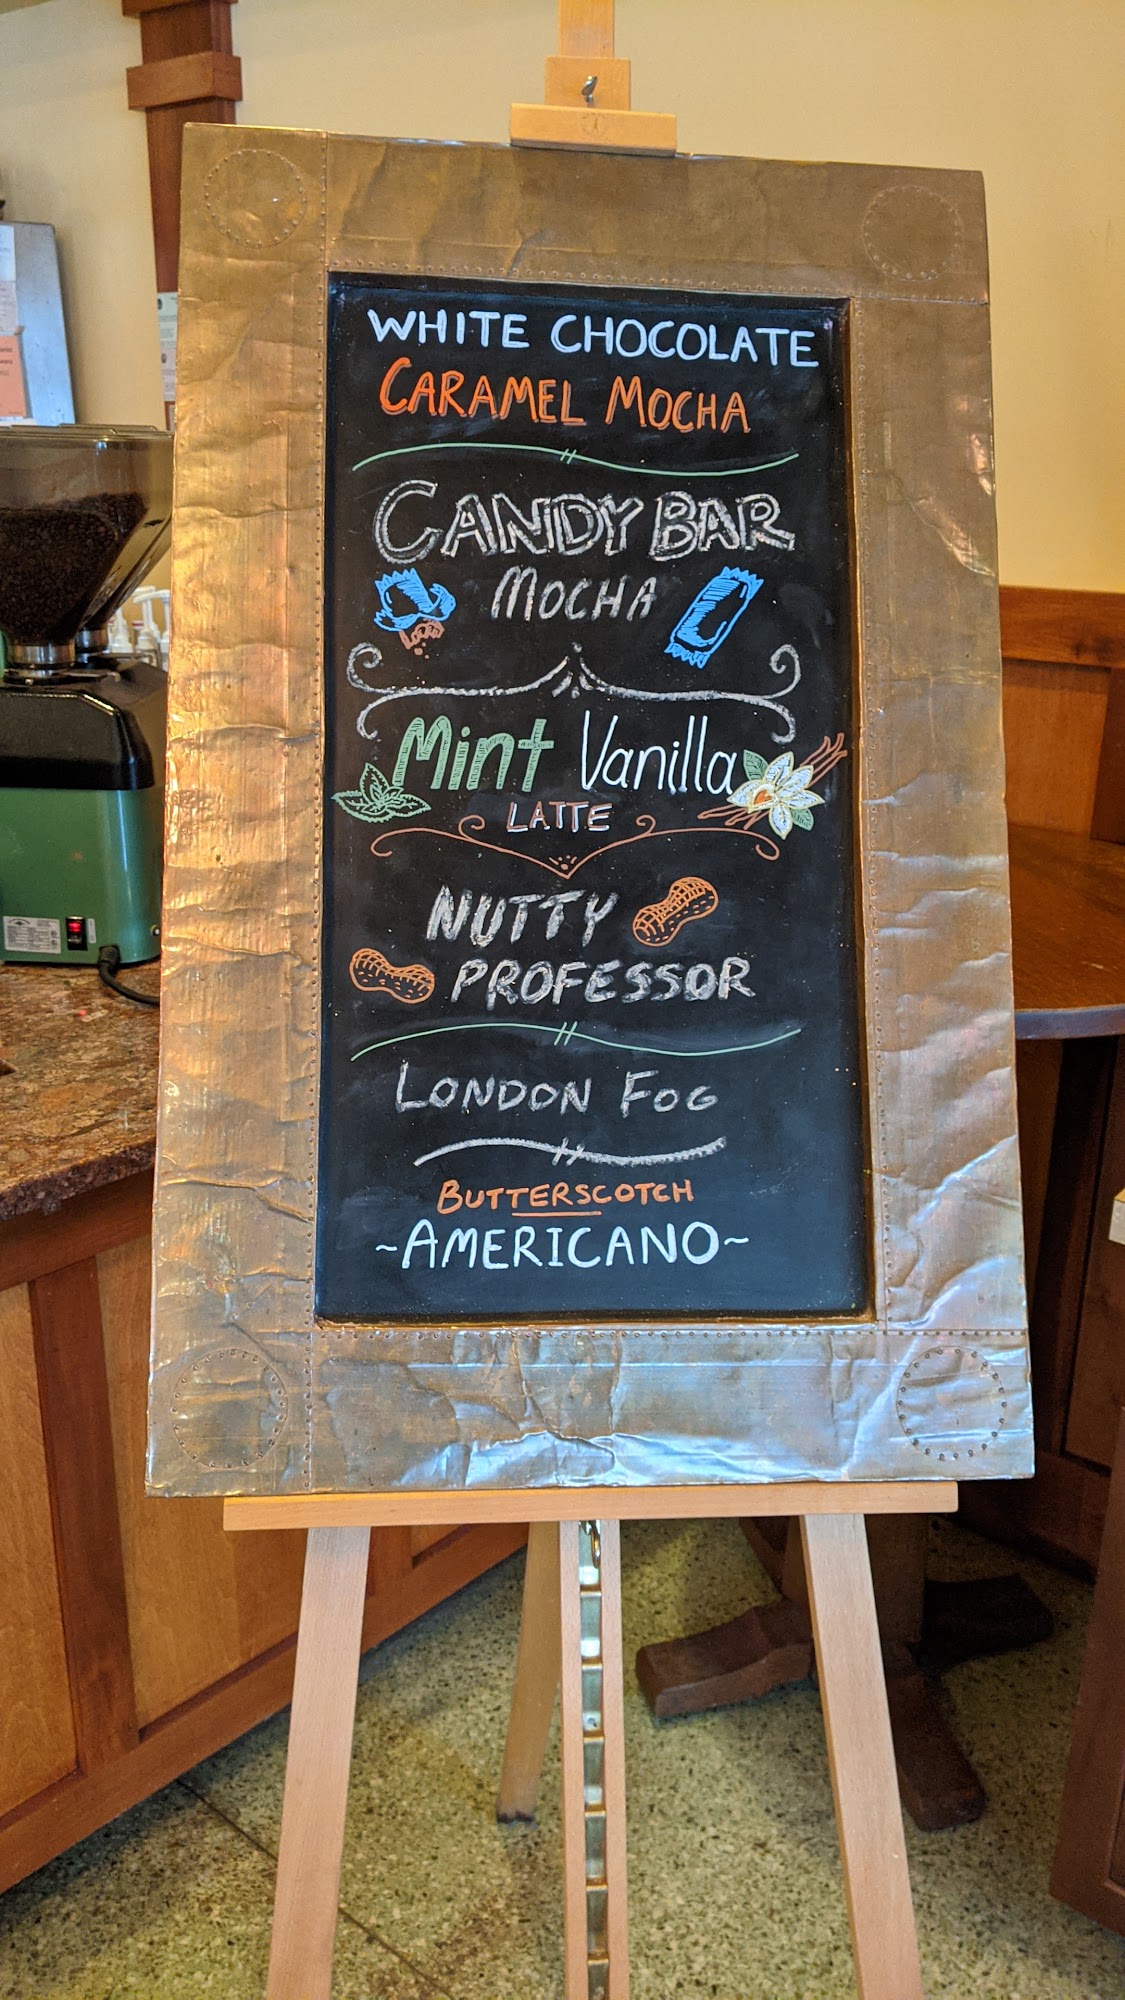 WHITE CHOCOLATE
CARAMEL MOCHA
CANDY BAR
MOCHA
Mint Vanilla
LATTE
NUTTY
PROFESSOR
LONDON FOG
BUTTERSCOTCH
~AMERICANO~